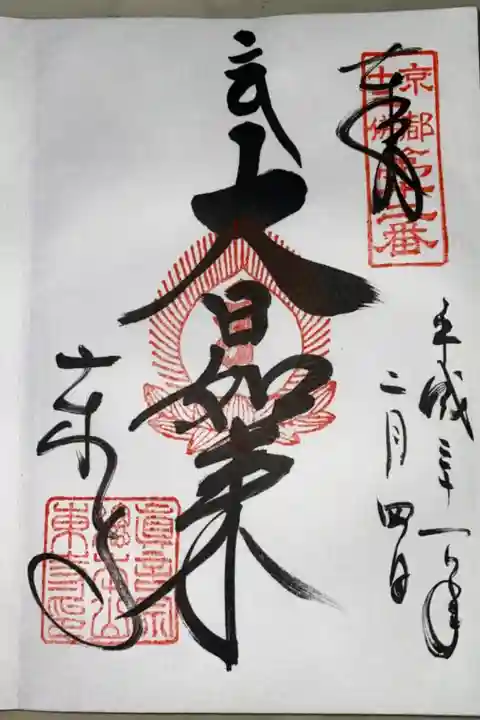 京都
十三佛
第十二番
奉拝
平成三十一年
二月四日
弐
大日如来
東寺
真言宗
総本山
東寺之印